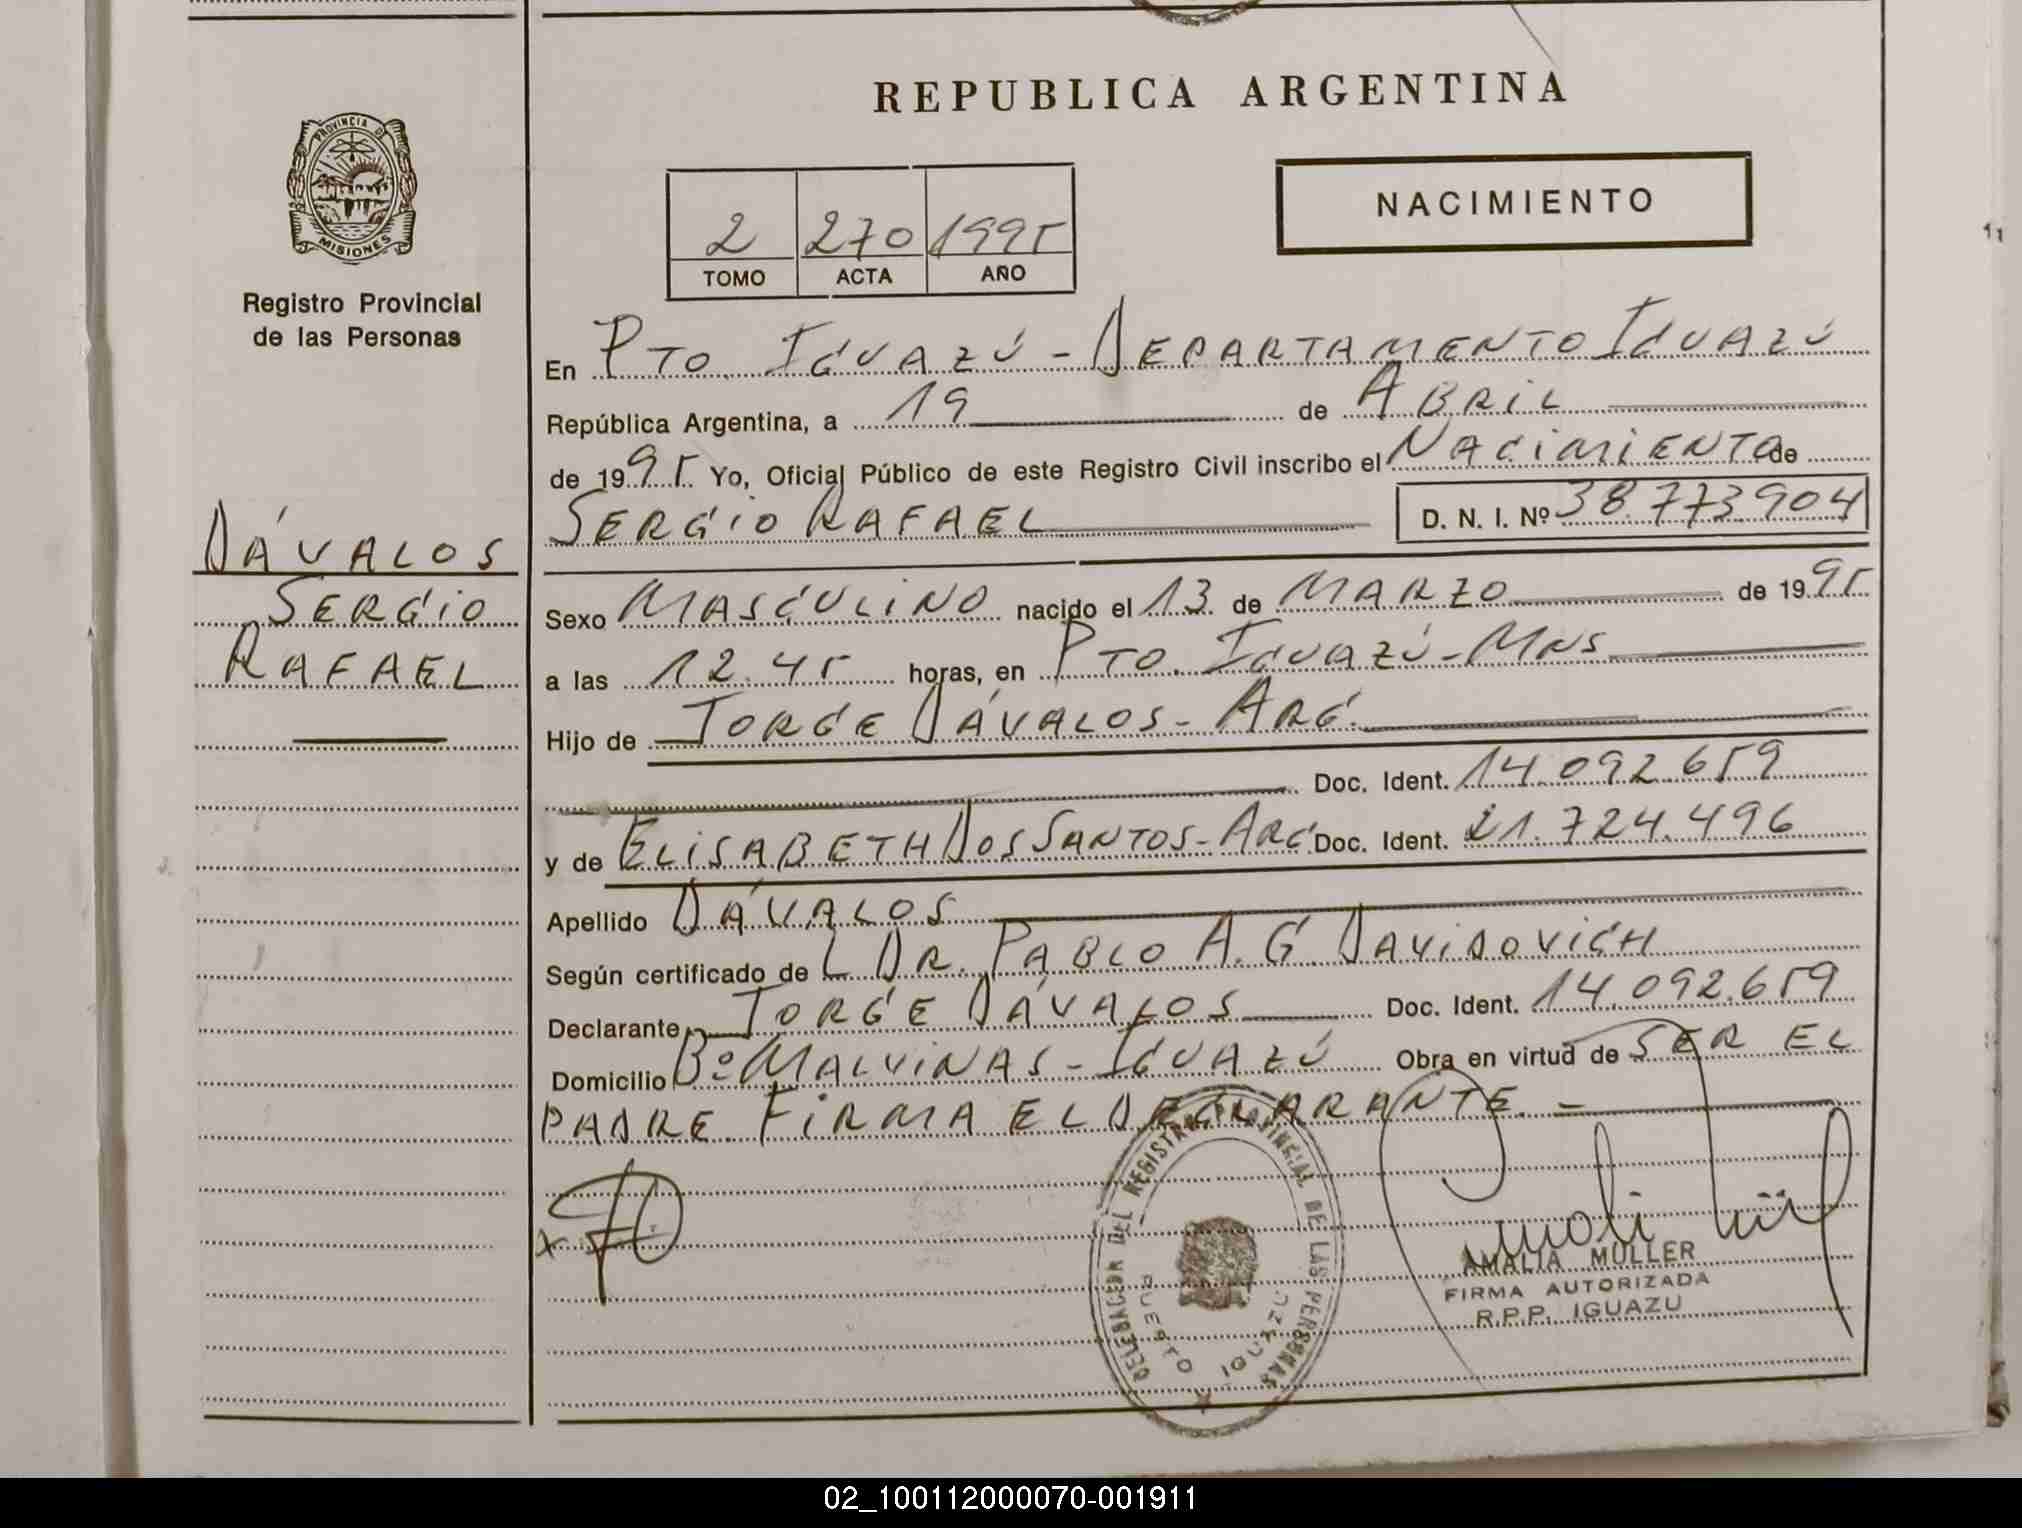 REPUBLICA ARGENTINA
PROVINCIA DE
MISIONES
Registro Provincial
de las Personas
NACIMIENTO
2 270 1995
TOMO ACTA AÑO
En PTO. IGUAZÚ - DEPARTAMENTO IGUAZÚ
República Argentina, a 19 de ABRIL
de 1995 Yo, Oficial Público de este Registro Civil inscribo el NACIMIENTO de
SERGIO RAFAEL D. N. I. Nº 38.773.904
DÁVALOS
SERGIO
RAFAEL
Sexo MASCULINO nacido el 13 de MARZO de 1995
a las 12.45 horas, en PTO. IGUAZÚ - MNS
Hijo de JORGE DÁVALOS - ARG.
Doc. Ident. 14.092.659
y de ELISABETH DOS SANTOS - ARG Doc. Ident. 21.724.496
Apellido DÁVALOS
Según certificado de L DR. PABLO A. G. DAVIDOVICH
Declarante JORGE DÁVALOS Doc. Ident. 14.092.659
Domicilio Bº MALVINAS - IGUAZÚ Obra en virtud de SER EL
PADRE. FIRMA EL DECLARANTE. -
x
DELEGACION DEL REGISTRO PROVINCIAL DE LAS PERSONAS
PUERTO IGUAZU
AMALIA MULLER
FIRMA AUTORIZADA
R.P.P. IGUAZU
02_100112000070-001911